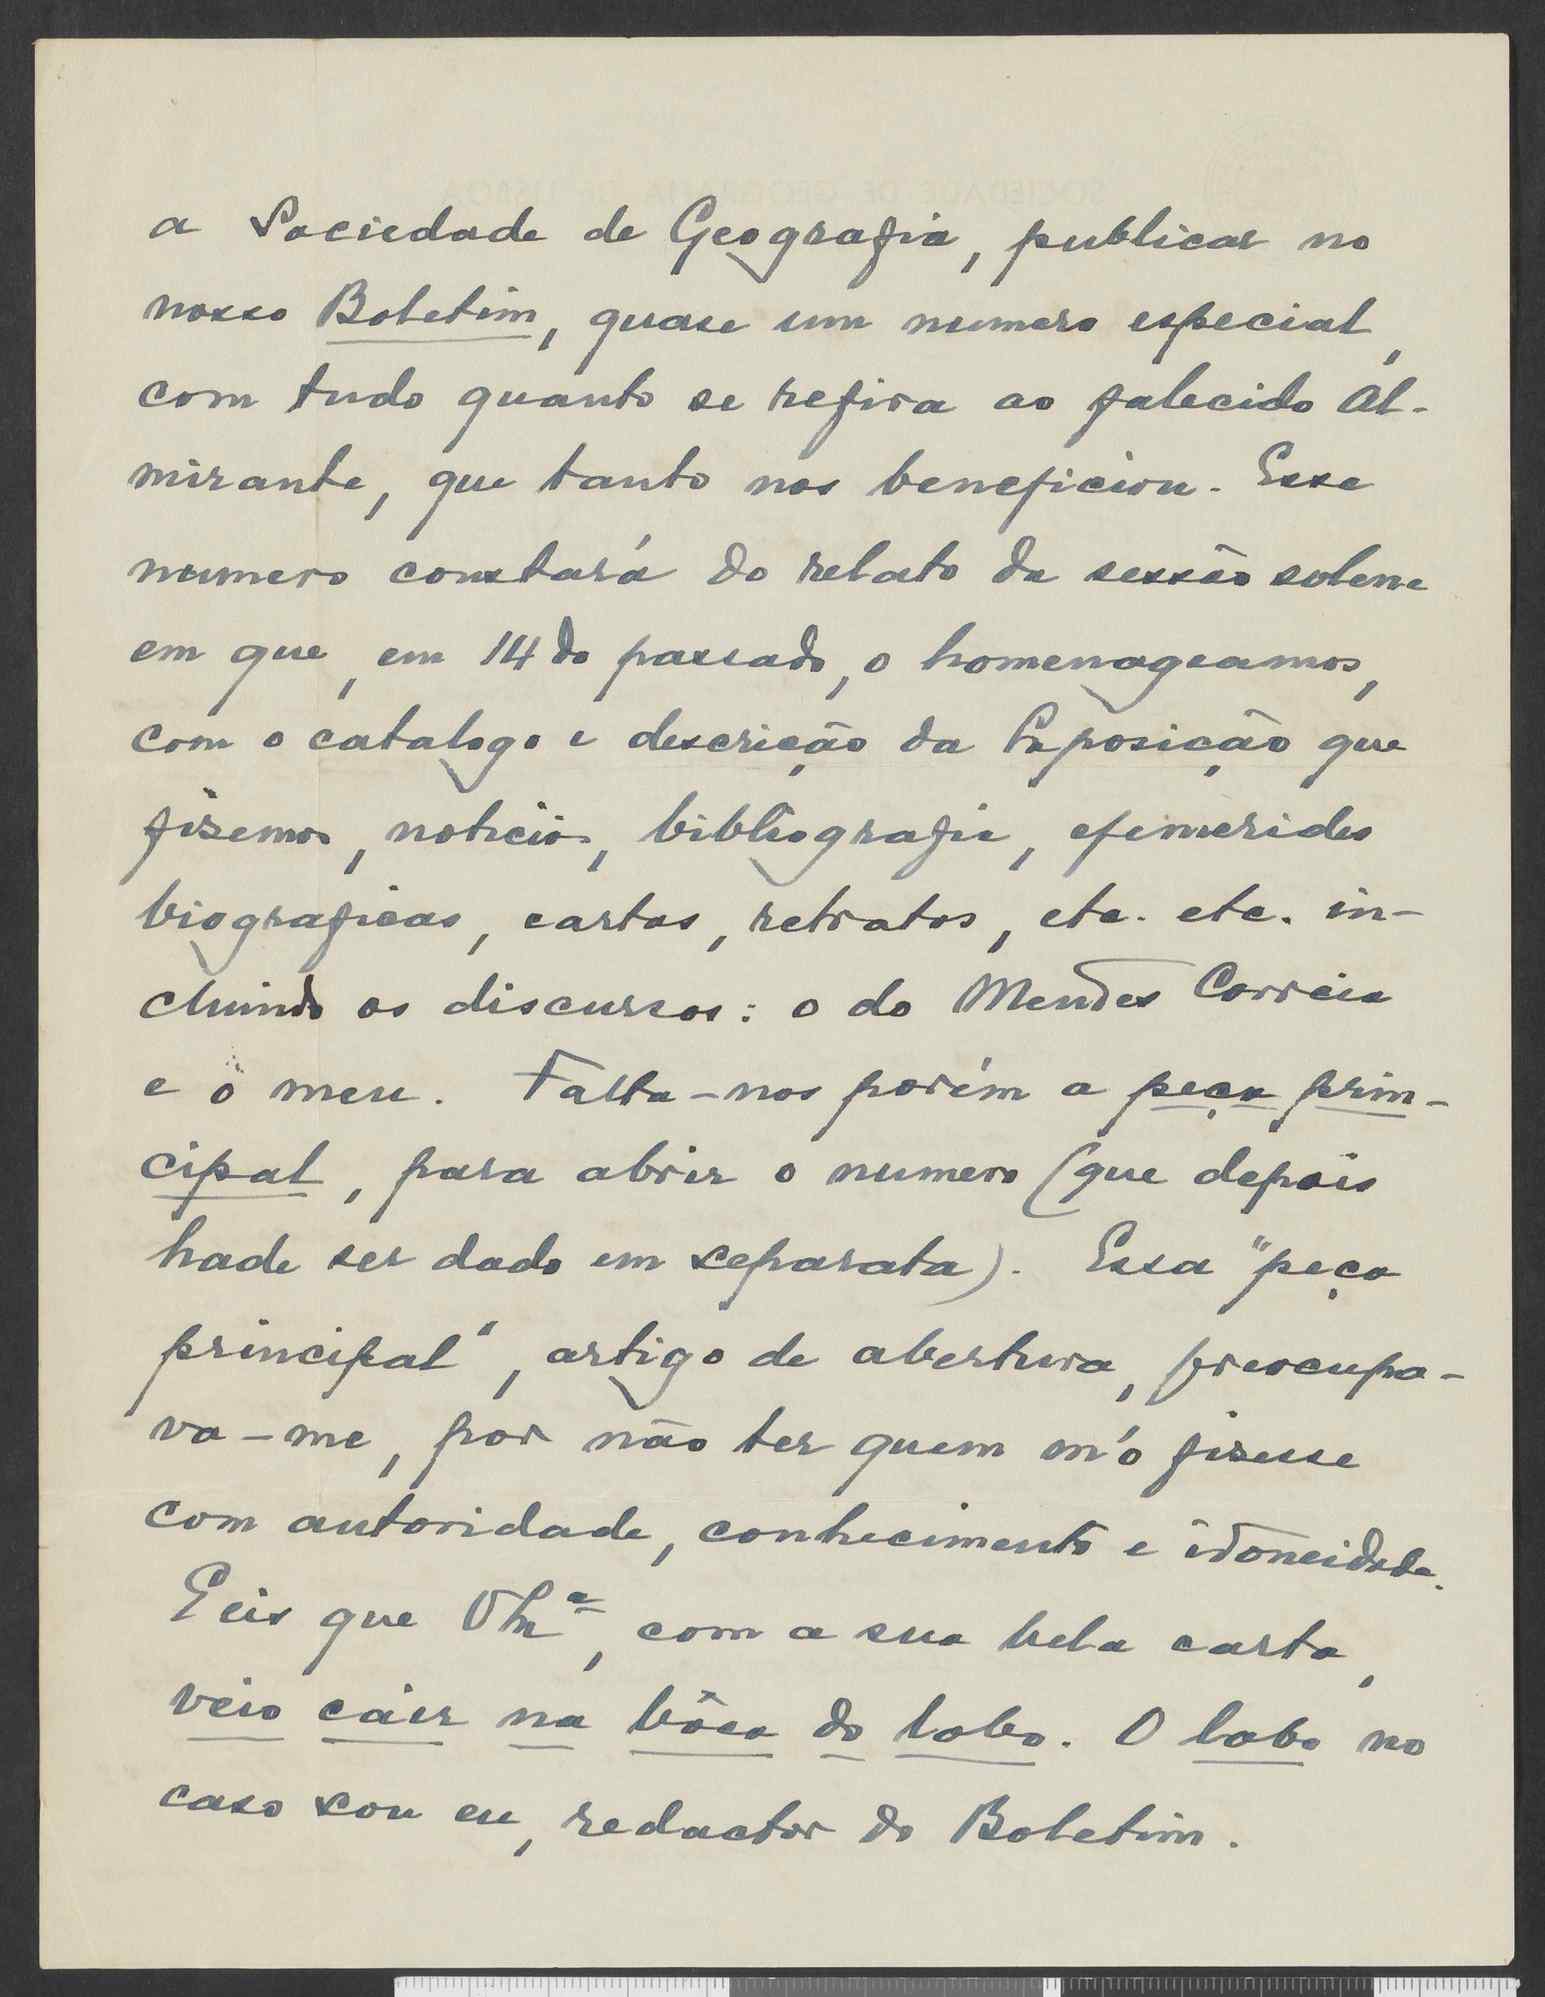 a Sociedade de Geografia, publicar no
nosso Boletim, quase um numero especial,
com tudo quanto se refira ao falecido Al-
mirante, que tanto nos beneficiou. Esse
numero constará do relato da sessão solene
em que, em 14 do passado, o homenageamos,
com o catalogo e descrição da Exposição que
fizemos, noticias, bibliografia, efemerides
biograficas, cartas, retratos, etc. etc. in-
cluindo os discursos: o do Mendes Correia
e o meu. Falta-nos porém a peça prin-
cipal, para abrir o numero (que depois
hade ser dado em separata). Essa "peça
principal", artigo de abertura, preocupa-
va-me, por não ter quem m'o fizesse
com autoridade, conhecimento e idoneidade.
E eis que V. Exª, com a sua bela carta,
veio cáir na bôca do lobo. O lobo no
caso sou eu, redactor do Boletim.
SOCIEDADE DE GEOGRAFIA DE LISBOA